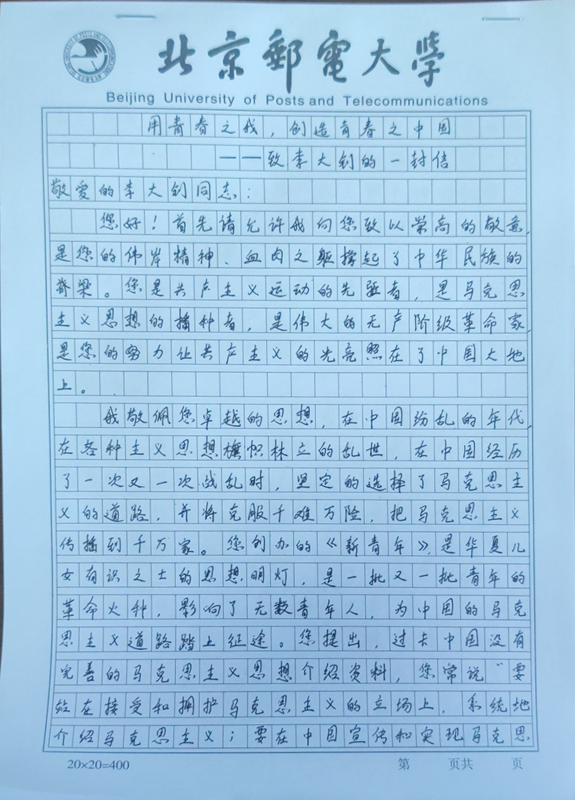 北京郵電大學
Beijing University of Posts and Telecommunications
用青春之我，创造青春之中国
——致李大钊的一封信
敬爱的李大钊同志：
您好！首先请允许我向您致以崇高的敬意，
是您的伟岸精神、血肉之躯撑起了中华民族的
脊梁。您是共产主义运动的先驱者，是马克思
主义思想的播种者，是伟大的无产阶级革命家，
是您的努力让共产主义的光亮照在了中国大地
上。
我敬佩您卓越的思想，在中国纷乱的年代，
在各种主义思想旗帜林立的乱世，在中国经历
了一次又一次战乱时，坚定的选择了马克思主
义的道路，并将克服千难万险，把马克思主义
传播到千万家。您创办的《新青年》是华夏儿
女有识之士的思想明灯，是一批又一批青年的
革命火种，影响了无数青年人，为中国的马克
思主义道路踏上征途。您提出，过去中国没有
完善的马克思主义思想介绍资料，您常说“要
站在接受和拥护马克思主义的立场上，系统地
介绍马克思主义；要在中国宣传和实现马克思
20×20=400 第 页共 页